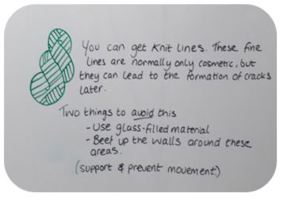 You can get Knit lines. These fine
lines are normally only cosmetic, but
they can lead to the formation of cracks
later.
Two things to avoid this
- Use glass-filled material
- Beef up the walls around these
areas.
(support & prevent movement)